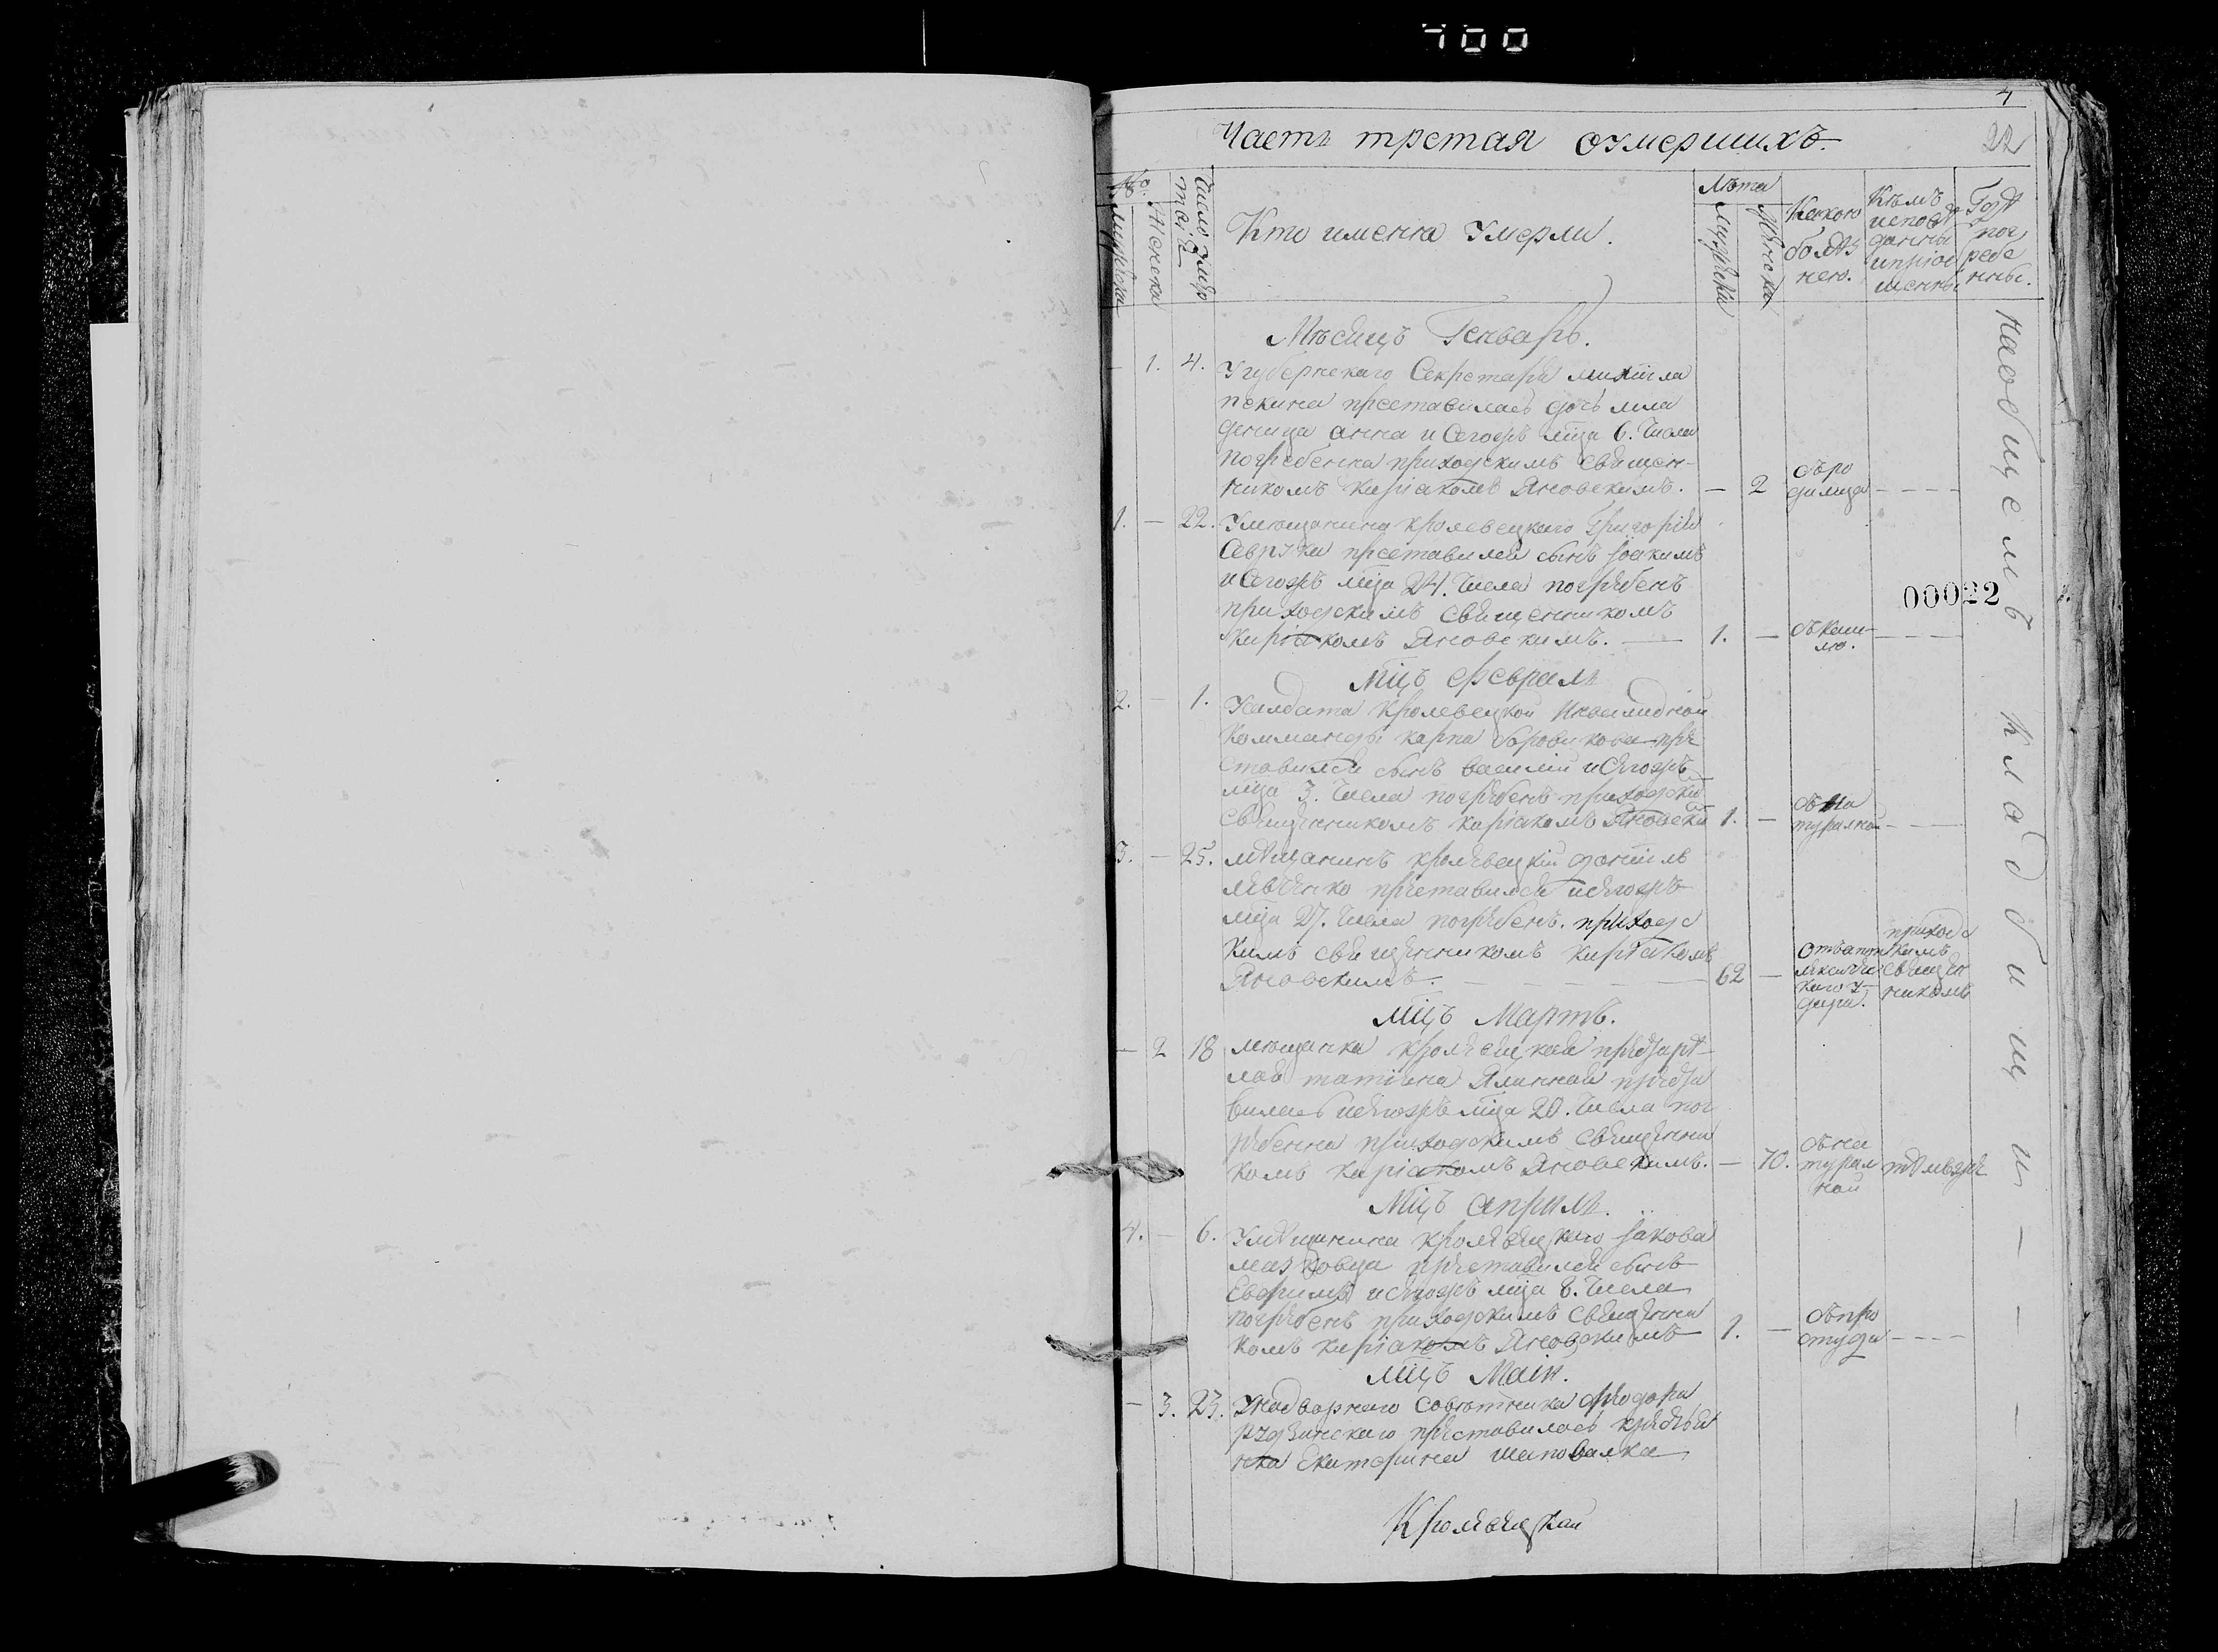 400
4
Часть третая оумершихъ.
22
№.
Мужеска
Женска
Число умер
Кто именна Умерли.
Лѣта
Мужеска
Женска
Какою
болѣз
нею.
Кѣмъ
исповѣ
данны
и приоб
щенны
Гдѣ
пог
ребе
нны.
на общемъ кладбищи
Мѣсяцъ Генварь.
1. 4. У губернскаго Секретаря Михаила
преставилась дочь мла
деница анна и Сегожъ мца 6. Числа
погребенна приходскимъ священ-
никомъ Киріакомъ Яновскимъ. — 2
1. — 22. У мещанина кролевецкаго Григорія
преставился сынъ Іоакимъ
и Сегожъ мца 24. Числа погребенъ
приходскимъ Священникомъ
Киріакомъ Яновскимъ. — 1. — Ѿ каш-
лю.
00022
Мцъ Февраль
2. — 1. У салдата Кролевецкой Инвалидной
Комманды карпа боровикова пре
ставился сынъ василій и Сегожъ
мца 3. Числа погребенъ приходски
Священникомъ киріакомъ Яновски 1. — Ѿ на
туралной
3. — 25. мѣщанинъ кролевецкій даніилъ
левченко преставился и сегожъ
мца 27. Числа погребенъ. приходс
кимъ священникомъ киріакомъ
Яновскимъ. 62 —
удара.
приходс
кимъ
священ
никомъ
Мцъ Мартъ.
— 2 18 мещанка кролевецкая
татіана
и сегожъ мца 20. Числа пог
ребенна приходскимъ Священни
комъ киріакомъ Яновскимъ. — 70. Ѿ на
турал
ной
тѣмъ же
Мцъ априль.
4. — 6. У мѣщанина кролевецкаго Іакова
преставился сынъ
Евфимъ и сегожъ мца 8. Числа
погребенъ приходскимъ Священни
комъ киріакомъ Яновскимъ 1. — Ѿ про
студи
Мцъ Маій.
— 3. 23. У надворнаго Совѣтника Феодора
преставилась крестья
нка Екатерина шаповалка
Кролевецкой